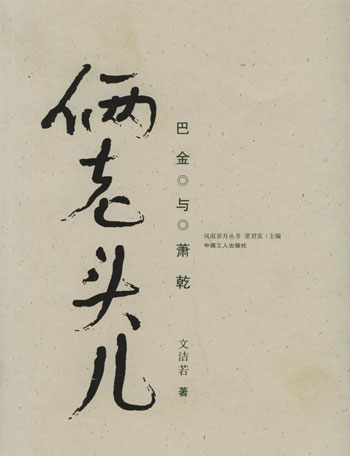 俩老头儿
巴金◎与◎萧乾
风雨岁月丛书 常君实/主编
中国工人出版社
文洁若 著